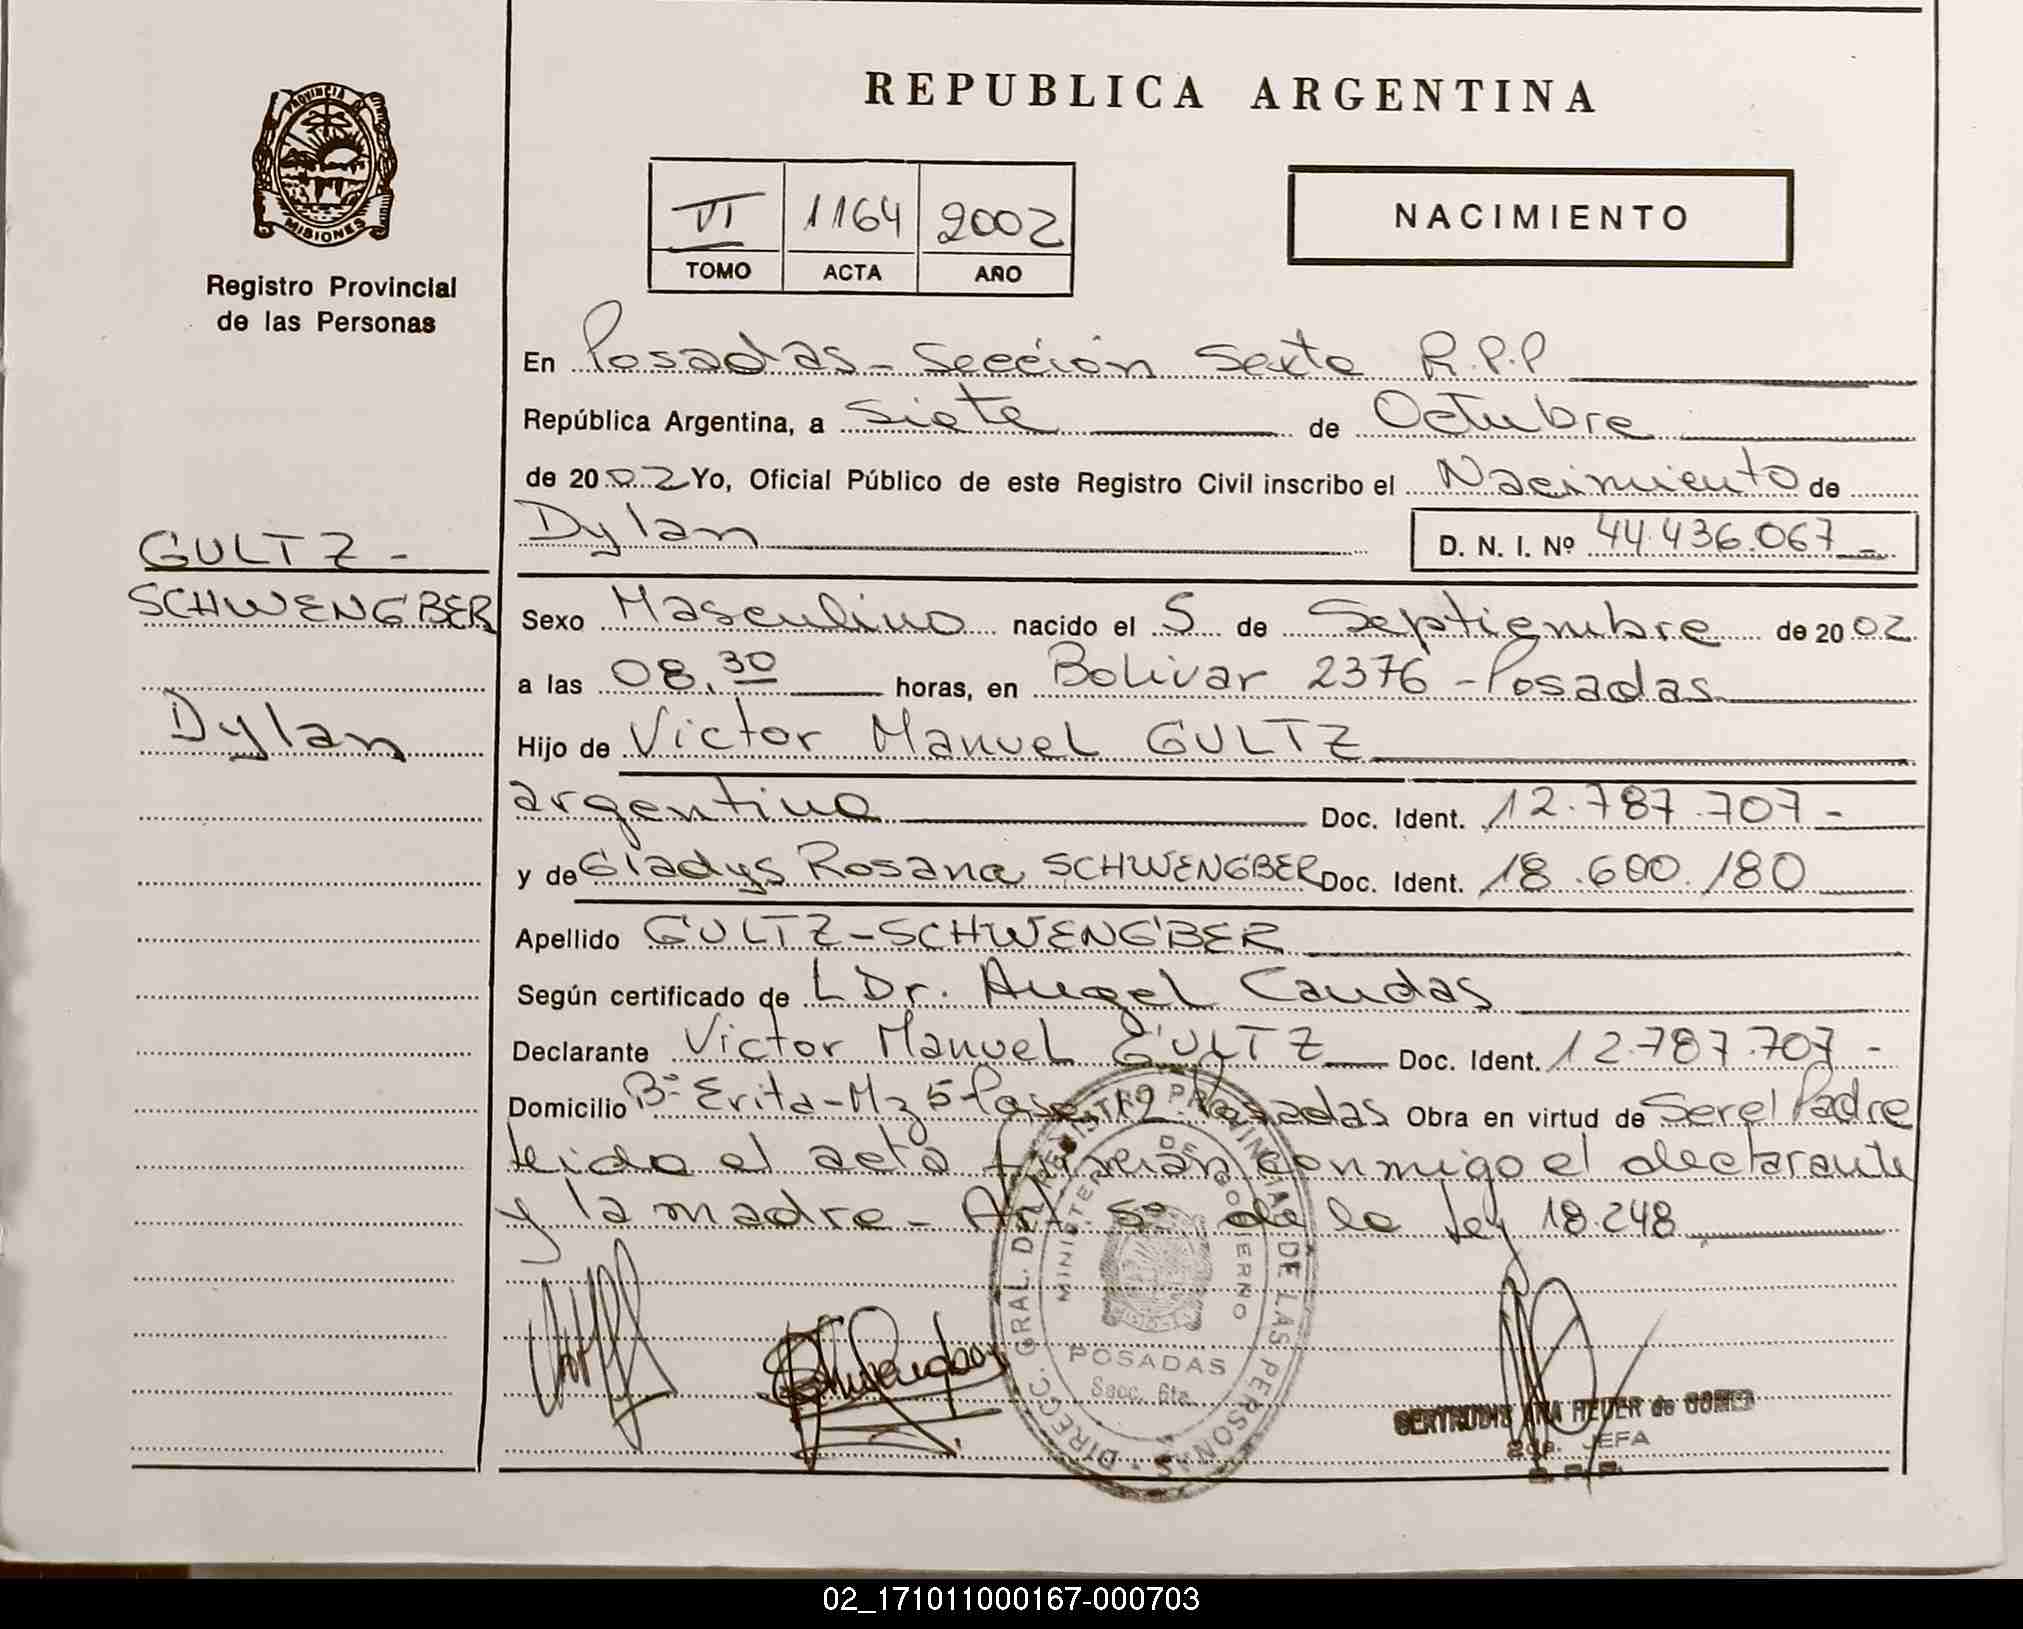 REPUBLICA ARGENTINA
PROVINCIA
MISIONES
Registro Provincial
de las Personas
VI 1164 2002
TOMO ACTA AÑO
NACIMIENTO
En Posadas - Sección Sexta R.P.P
República Argentina, a Siete de Octubre
de 2002 Yo, Oficial Público de este Registro Civil inscribo el Nacimiento de
Dylan D. N. I. Nº 44.436.067
GULTZ -
SCHWENGBER
Dylan
Sexo Masculino nacido el 5 de Septiembre de 2002
a las 08.30 horas, en Bolivar 2376 - Posadas
Hijo de Victor Manuel GULTZ
argentino Doc. Ident. 12.787.707 -
y de Gladys Rosana SCHWENGBER Doc. Ident. 18.600.180
Apellido GULTZ-SCHWENGBER
Según certificado de L Dr. Angel Caudas
Declarante Victor Manuel GULTZ Doc. Ident. 12.787.707 -
Domicilio Bº Evita - Mz 5 Posadas Obra en virtud de Ser el Padre
leida el acta firman conmigo el declarante
y la madre - Art. 5º de la Ley 18.248
DIRECC. GRAL. DEL REGISTRO PROVINCIAL DE LAS PERSONAS
MINISTERIO DE GOBIERNO
POSADAS
Secc. 6ta.
GERTRUDIS ANA de GOMEZ
2da. JEFA
R.P.P.
02_171011000167-000703